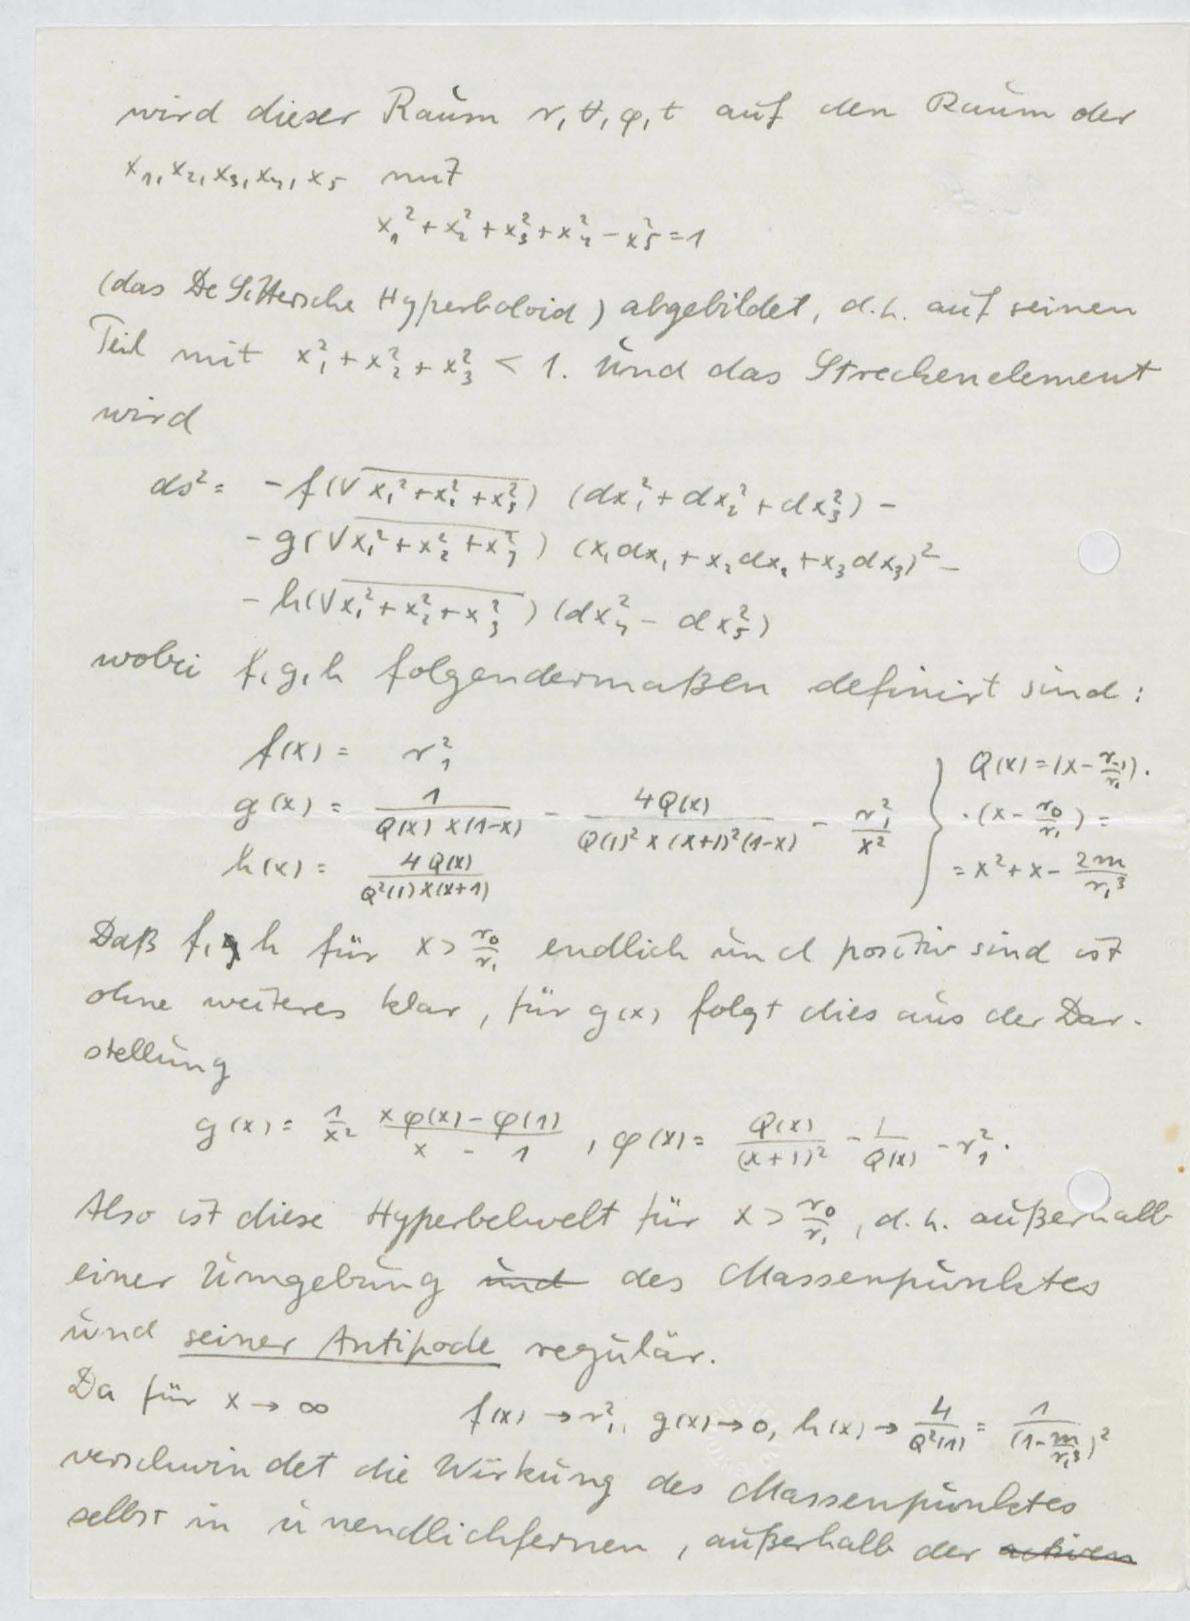 wird dieser Raum r, ϑ, φ, t auf den Raum der
x₁, x₂, x₃, x₄, x₅ mit
x₁² + x₂² + x₃² + x₄² − x₅² = 1
(das De Sittersche Hyperboloid) abgebildet, d.h. auf seinen
Teil mit x₁² + x₂² + x₃² < 1. Und das Streckenelement
wird
ds² = −f(√x₁² + x₂² + x₃²) (dx₁² + dx₂² + dx₃²) −
− g(√x₁² + x₂² + x₃²) (x₁dx₁ + x₂dx₂ + x₃dx₃)² −
− h(√x₁² + x₂² + x₃²) (dx₄² − dx₅²)
wobei f, g, h folgendermaßen definirt sind:
f(x) = r₁²
g(x) = 1/(Q(x) x(1−x)) − 4Q(x)/(Q(1)² x (x+1)²(1−x)) − r₁²/x² } Q(x) = (x − r₋₁/r₁) · · (x − r₀/r₁) = = x² + x − 2m/r₁³
h(x) = 4Q(x)/(Q²(1) x(x+1))
Daß f, h für x > r₀/r₁ endlich und positiv sind ist
ohne weiteres klar, für g(x) folgt dies aus der Dar-
stellung
g(x) = 1/x² (xφ(x) − φ(1))/(x − 1), φ(x) = Q(x)/(x+1)² − 1/Q(x) − r₁².
Also ist diese Hyperbelwelt für x > r₀/r₁, d.h. außerhalb
einer Umgebung und des Massenpunktes
und seiner Antipode regulär.
Da für x → ∞ f(x) → r₁², g(x) → 0, h(x) → 4/Q²(1) = 1/(1 − m/r₁³)²
verschwindet die Wirkung des Massenpunktes
selbst in unendlichfernen, außerhalb der